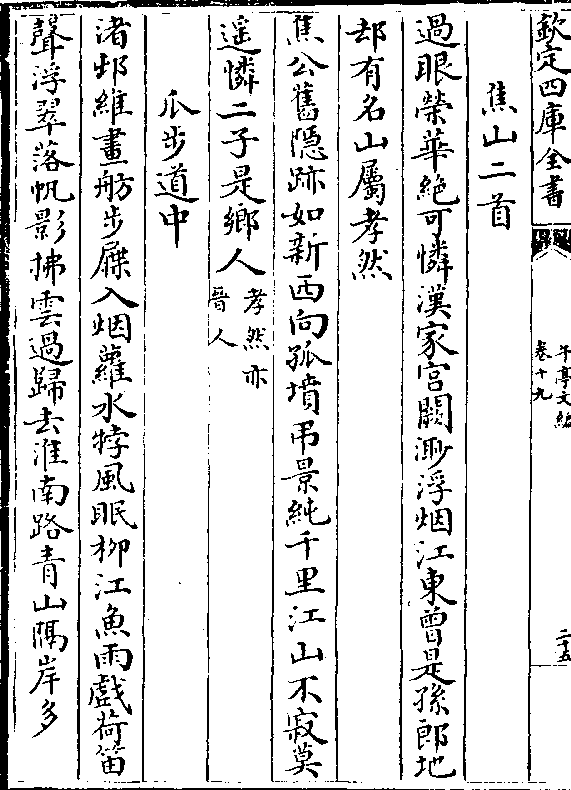 欽定四庫全書
午亭文編
卷十九
二十五
焦山二首
過眼榮華絶可憐漢家宮闕渺浮烟江東曾是孫郎地
却有名山屬孝然
焦公舊隠跡如新西向孤墳弔景純千里江山不寂莫
遥憐二子是鄉人孝然亦
晉人
瓜步道中
渚邨維畫舫步屧入烟蘿水悖風眠柳江魚雨戲荷笛
聲浮翠落帆影拂雲過歸去淮南路青山隔岸多